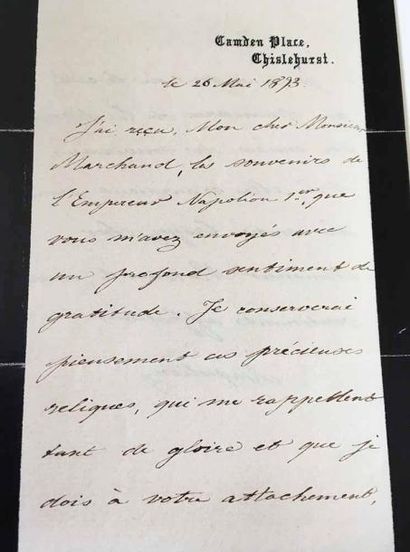 Camden Place,
Chislehurst.
le 26 Mai 1873.
J'ai reçu, Mon cher Monsieur
Marchand, les souvenirs de
l'Empereur Napoléon 1er, que
vous m'avez envoyés avec
un profond sentiment de
gratitude. Je conserverai
pieusement ces précieuses
reliques, qui me rappellent
tant de gloire et que je
dois à votre attachement,